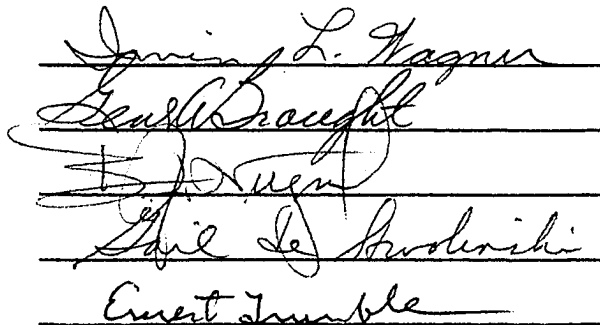 Irvin L. Wagner
Gene A Braught
Gail de Stwolinski
Ernest Trumble